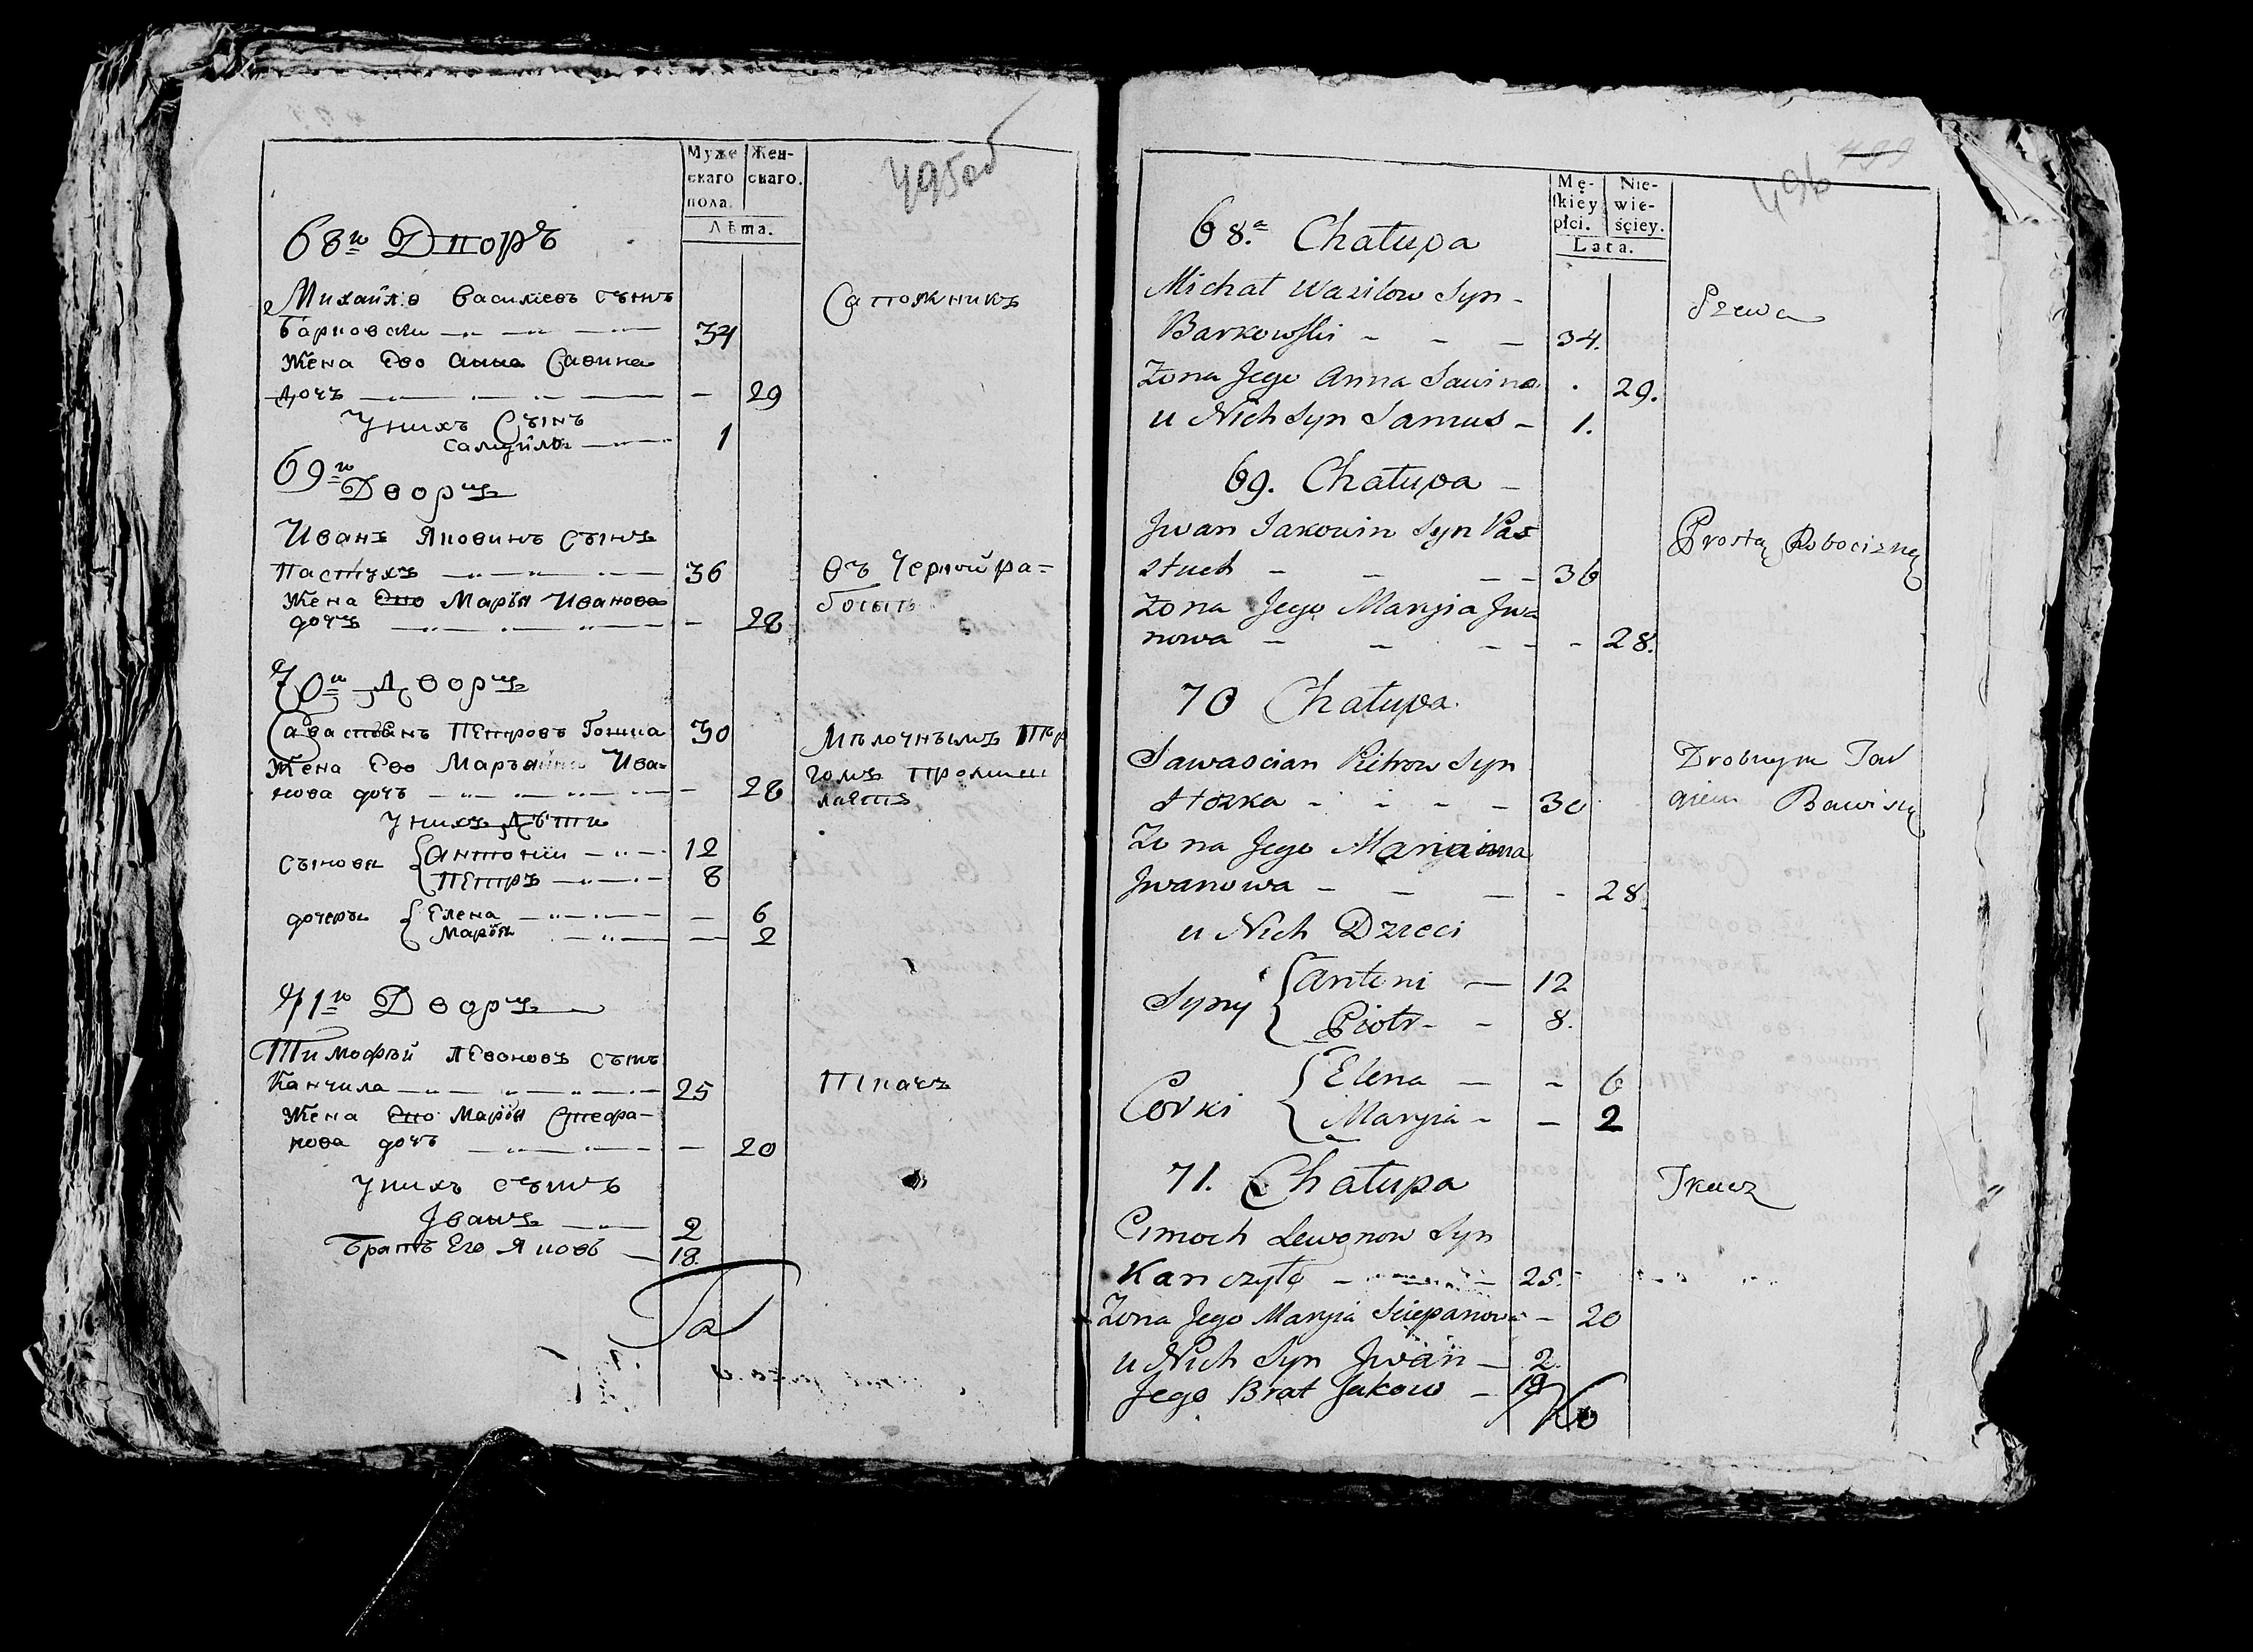 Муже
скаго
пола.
Жен-
скаго.
Лѣта.
495об
68й Дворъ
Михайло Василіевъ сынъ
Барковски 34
Сапожникъ
Жена Его Анна Савина
дочь — 29
У нихъ Сынъ
Самуйла 1
69й
Дворъ
Иванъ Яковинъ Сынъ
Пастухъ 36
въ Черной ра-
ботѣ
Жена Его Марья Иванова
дочь — 28
70й Дворъ
Савастьянъ Петровъ 30
Мѣлочнымъ Тор
гомъ Промыш
ляетъ
Жена Его Марьяна Ива-
нова дочь — 28
У нихъ Дѣти
Сыновя Антоній 12
Петръ 8
дочеры Елена — 6
Марья — 2
71й Дворъ
Тимофѣй Левоновъ сынъ
Канчила 25
Ткачъ
Жена Его Марья Стефа-
нова дочь — 20
У нихъ сынъ
Іванъ 2
Братъ Его Яковъ 18.
Mę-
skiey
płci.
Nie-
wie-
ściey.
Lata.
496
499
68.a Chałupa
Michał Wazilow Syn
Barkowski 34.
Szewc
Żona Jego Anna Sawina . 29.
u Nich Syn Samus 1.
69. Chałupa
Jwan Jakowin Syn Pas
stuch 36
Prostą Robocizną
Żona Jego Maryia Jwa
nowa - 28.
70 Chałupa
Sawascian Pietrow Syn
30
Drobnym Tar
giem Bawi się
Żona Jego Marianna
Jwanowa - 28.
u Nich Dzieci
Syny Antoni 12
Piotr 8.
Corki Elena - 6
Maryia - 2
71. Chałupa
Tkacz
Cimoch Lewonow Syn
Kanczyło 25.
Żona Jego Maryia Sciepanowa - 20
u Nich Syn Jwan 2.
Jego Brat Jakow 18